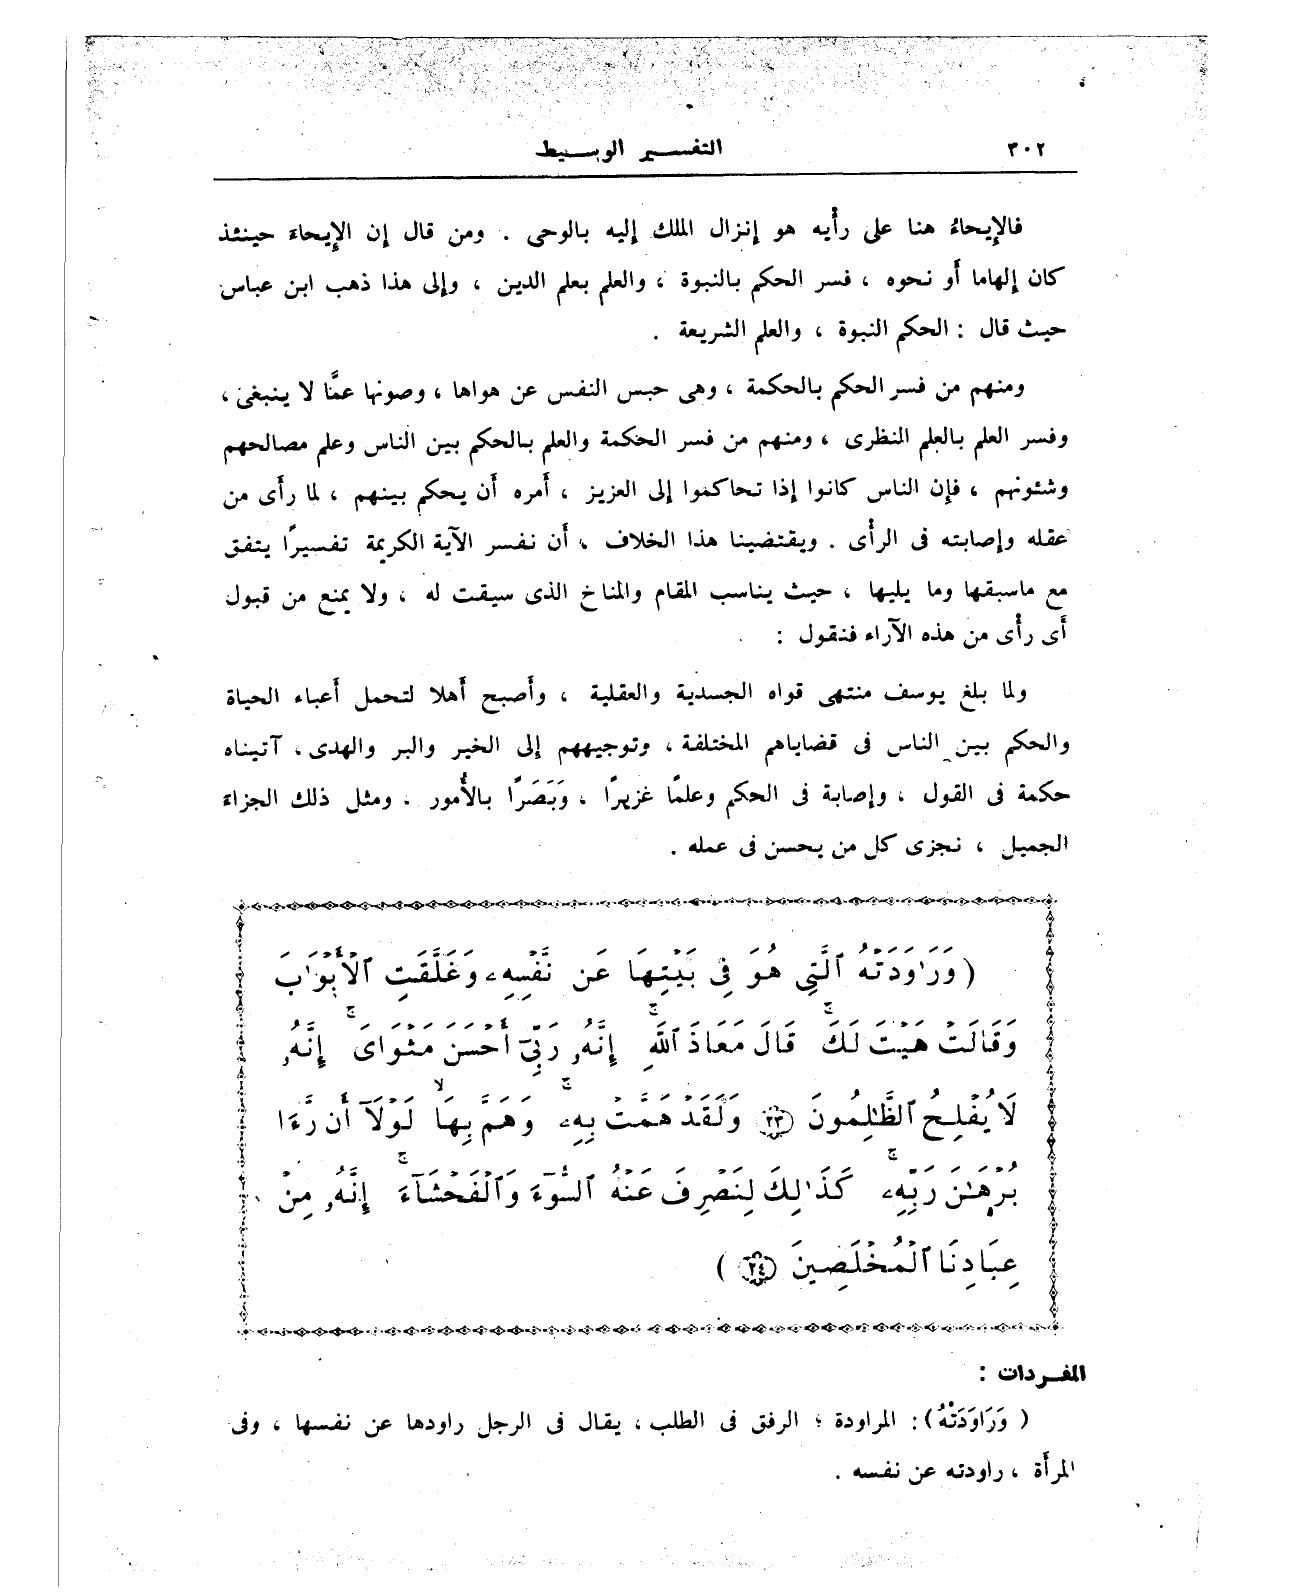 ٣٠٢ التفسير الوسيط
فالإيحاءُ هنا على رأْيه هو إنزال الملك إليه بالوحى . ومن قال إن الإيحاءَ حينئذ
كان إلهاما أَو نحوه ، فسر الحكم بالنبوة ، والعلم بعلم الدين ، وإلى هذا ذهب ابن عباس
حيث قال : الحكم النبوة ، والعلم الشريعة .
ومنهم من فسر الحكم بالحكمة ، وهى حبس النفس عن هواها ، وصونها عمَّا لا ينبغى ،
وفسر العلم بالعلم النظرى ، ومنهم من فسر الحكمة والعلم بالحكم بين الناس وعلم مصالحهم
وشئونهم ، فإن الناس كانوا إذا تحاكموا إلى العزيز ، أَمره أَن يحكم بينهم ، لما رأَى من
عقله وإصابته فى الرأْى . ويقتضينا هذا الخلاف ، أَن نفسر الآية الكريمة تفسيرًا يتفق
مع ماسبقها وما يليها ، حيث يناسب المقام والمناخ الذى سيقت له ، ولا يمنع من قبول
أَى رأْى من هذه الآراء فنقول :
ولما بلغ يوسف منتهى قواه الجسدية والعقلية ، وأَصبح أَهلا لتحمل أَعباء الحياة
والحكم بين الناس فى قضاياهم المختلفة ، وتوجيههم إلى الخير والبر والهدى ، آتيناه
حكمة فى القول ، وإصابة فى الحكم وعلمًا غزيرًا ، وَبَصَرًا بالأُمور . ومثل ذلك الجزاءَ
الجميل ، نجزى كل من يحسن فى عمله .
(وَرَٰوَدَتْهُ ٱلَّتِى هُوَ فِى بَيْتِهَا عَن نَّفْسِهِۦ وَغَلَّقَتِ ٱلْأَبْوَٰبَ
وَقَالَتْ هَيْتَ لَكَ ۚ قَالَ مَعَاذَ ٱللَّهِ ۚ إِنَّهُۥ رَبِّىٓ أَحْسَنَ مَثْوَاىَ ۚ إِنَّهُۥ
لَا يُفْلِحُ ٱلظَّٰلِمُونَ ﴿٢٣﴾ وَلَقَدْ هَمَّتْ بِهِۦ ۚ وَهَمَّ بِهَا ۙ لَوْلَآ أَن رَّءَا
بُرْهَٰنَ رَبِّهِۦ ۚ كَذَٰلِكَ لِنَصْرِفَ عَنْهُ ٱلسُّوٓءَ وَٱلْفَحْشَآءَ ۚ إِنَّهُۥ مِنْ
عِبَادِنَا ٱلْمُخْلَصِينَ ﴿٢٤﴾ )
المفردات :
( وَرَاوَدَتْهُ ) : المراودة ؛ الرفق فى الطلب ، يقال فى الرجل راودها عن نفسها ، وفى
المرأَة ، راودته عن نفسه .